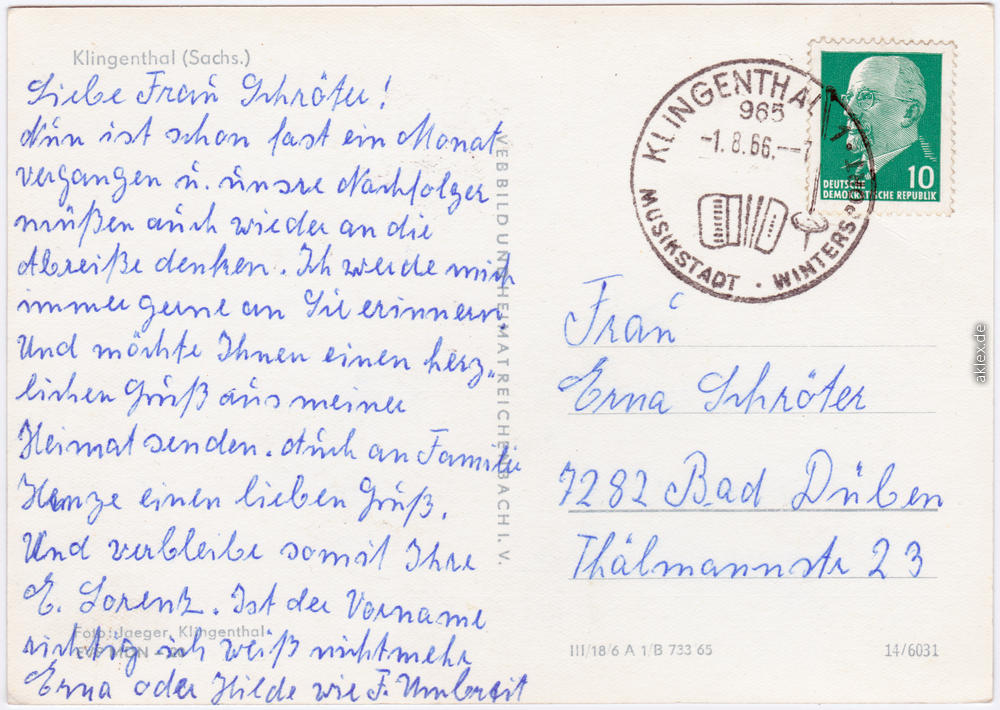 Klingenthal (Sachs.)
Liebe Frau Schröter!
Nun ist schon fast ein Monat
vergangen u. unsre Nachfolger
müßen auch wieder an die
Abreiße denken. Ich werde mich
immer gerne an Sie erinnern.
Und möchte Ihnen einen herz-
lichen Gruß aus meiner
Heimat senden. Auch an Familie
Henze einen lieben Gruß.
Und verbleibe somit Ihre
E. Lorenz. Ist der Vorname
richtig ich weiß nichtmehr
Erna oder Hilde wie F. Umbreit
Foto: Jaeger, Klingenthal
VEB BILD UND HEIMAT REICHENBACH I. V.
KLINGENTHAL
965
-1.8.66.--7
MUSIKSTADT · WINTERSPORT
DEUTSCHE
DEMOKRATISCHE REPUBLIK
10
Frau
Erna Schröter
7282 Bad Düben
Thälmannstr 23
III/18/6 A 1/B 733 65
14/6031
aklex.de